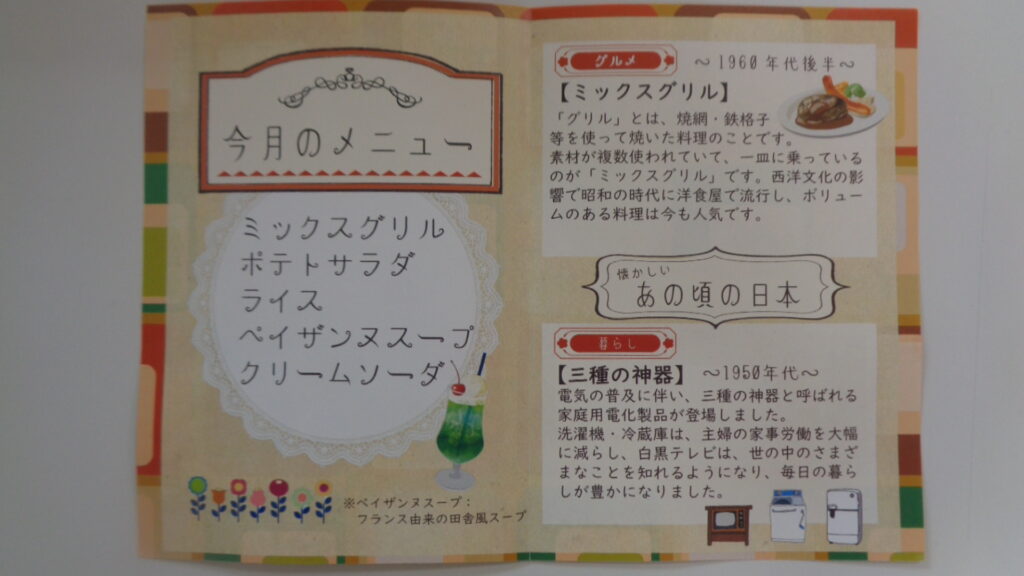 今月のメニュー
ミックスグリル
ポテトサラダ
ライス
ペイザンヌスープ
クリームソーダ
※ペイザンヌスープ：
フランス由来の田舎風スープ
グルメ
～1960年代後半～
【ミックスグリル】
「グリル」とは、焼網・鉄格子
等を使って焼いた料理のことです。
素材が複数使われていて、一皿に乗っている
のが「ミックスグリル」です。西洋文化の影
響で昭和の時代に洋食屋で流行し、ボリュー
ムのある料理は今も人気です。
懐かしい
あの頃の日本
暮らし
【三種の神器】 ～1950年代～
電気の普及に伴い、三種の神器と呼ばれる
家庭用電化製品が登場しました。
洗濯機・冷蔵庫は、主婦の家事労働を大幅
に減らし、白黒テレビは、世の中のさまざ
まなことを知れるようになり、毎日の暮ら
しが豊かになりました。